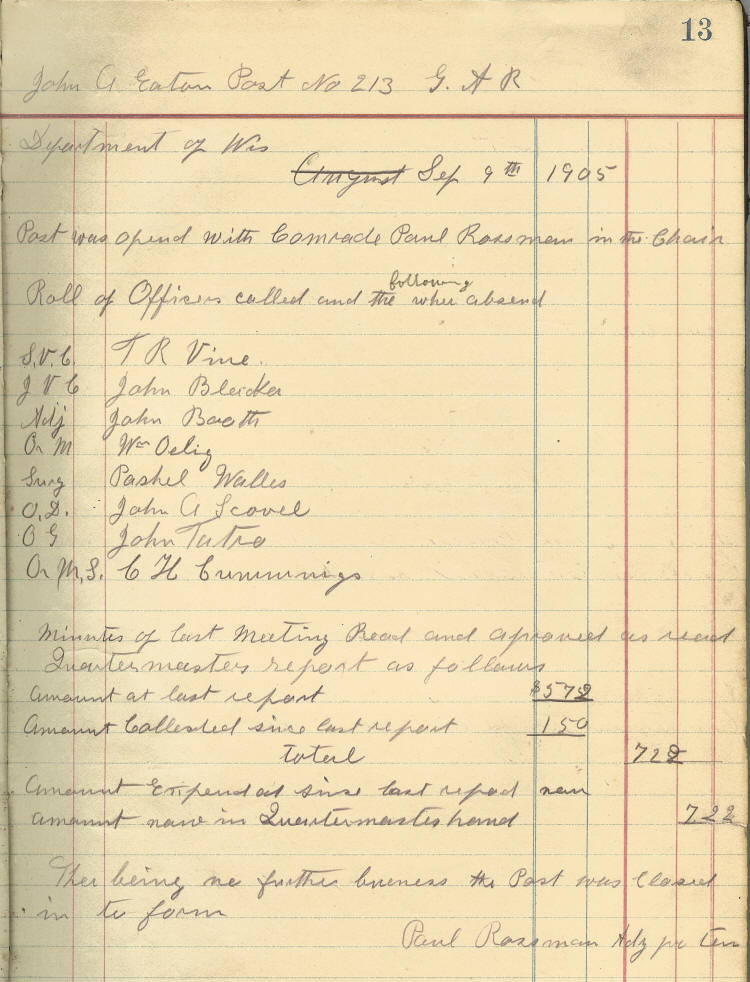 13
John A Eaton Post No 213 G. A R
Department of Wis
August Sep 9th 1905
Post was opend with Comrade Paul Rossman in the Chair
following
Roll of Officers called and the wher absend
S.V.C. T R Vine.
J V C John Bleicker
Adj John Booth
Qr M Wm Oelig
Surg Pashel Walles
O.D. John A Scovel
O G John Tatro
Qr M.S. C H Cummings
Minutes of last Meeting Read and aproved as read
Quartermasters report as follows
Amount at last report $572
Amount Collected since last report 150
total 722
Amount Expended since last repod non
amount now in Quartermasters hand 722
Ther being no further buness the Post was Closed
in to form
Paul Rossman Adj pr tem